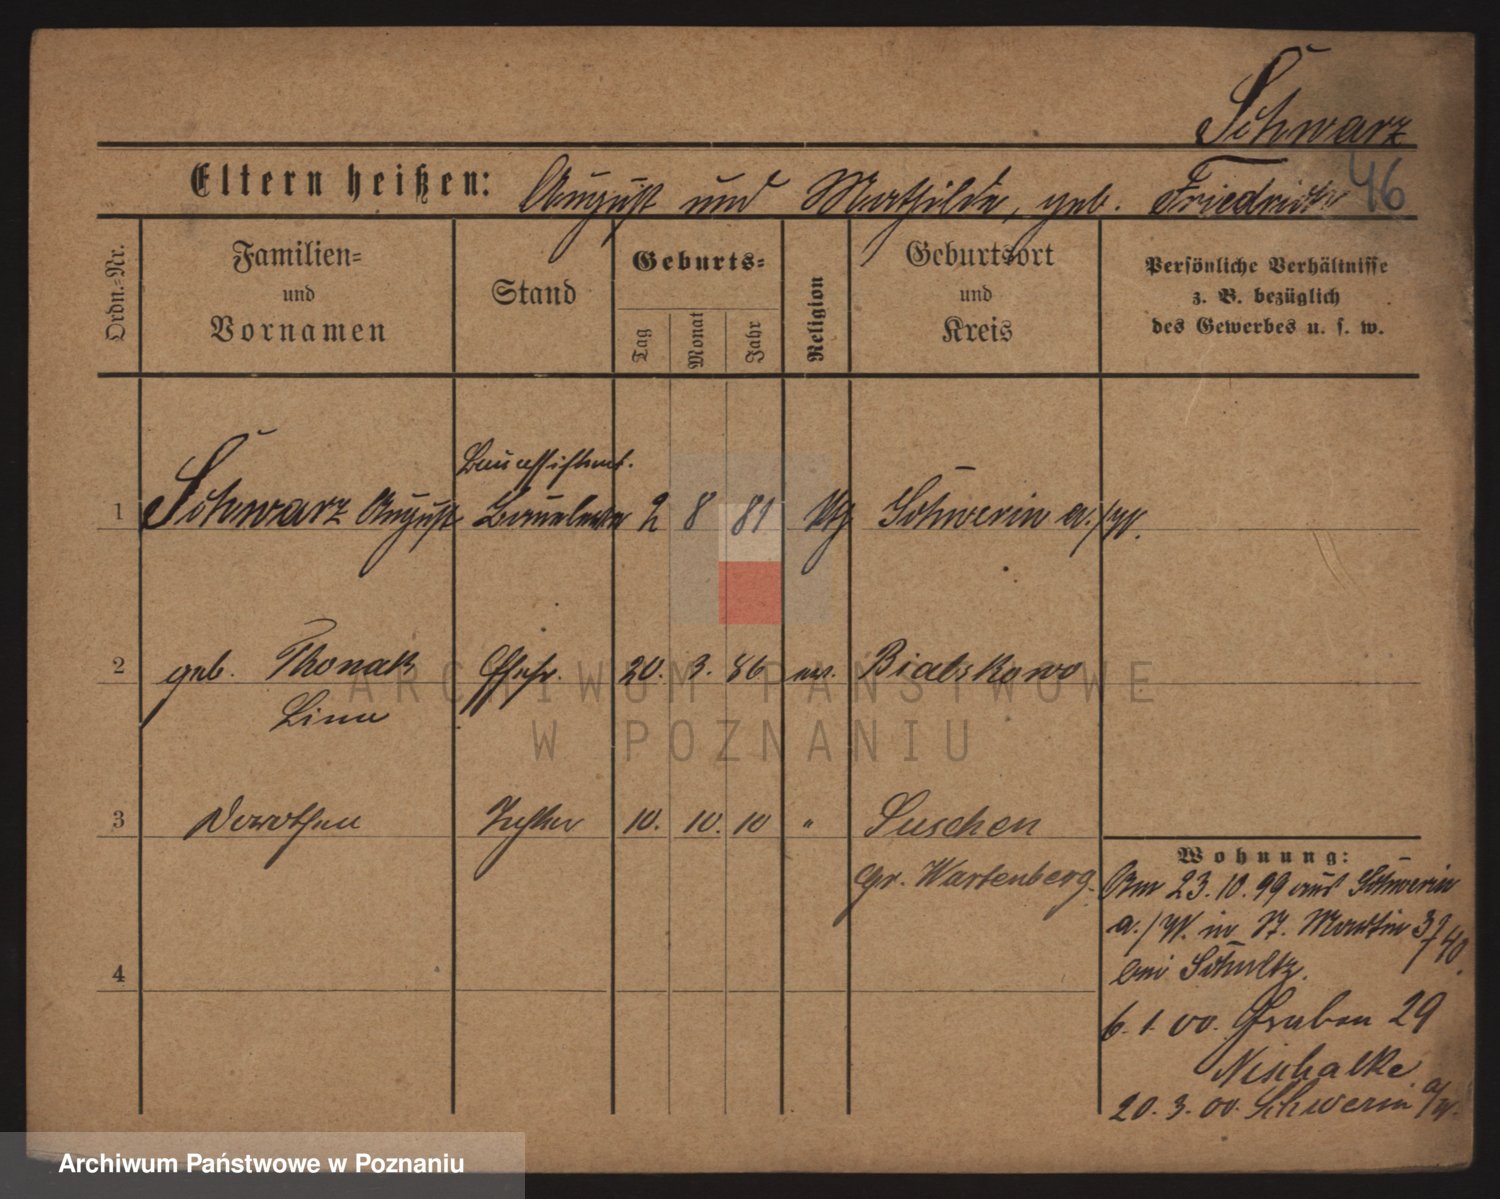 Schwarz
46
Eltern heißen: August und Mathilde, geb. Friedrich
Ordn.-Nr.
Familien-
und
Vornamen
Stand
Geburts-
Tag
Monat
Jahr
Religion
Geburtsort
und
Kreis
Persönliche Verhältnisse
z. B. bezüglich
des Gewerbes u. s. w.
Bauassistent.
1 Schwarz August Baueleve 2 8 81 Schwerin a./W.
2 geb. Thonak Ehefr. 20. 3. 86 ev. Bialskowo
Lina
3 Dorothea Tochter 10. 10. 10 " Suschen
Gr. Wartenberg.
4
Wohnung:
Am 23.10.99 aus Schwerin
a./W. in St. Martin 39/40.
bei Schultz.
6. 1. 00. Graben 29
Nischalke
20. 3. 00. Schwerin a/W.
ARCHIWUM PAŃSTWOWE
W POZNANIU
Archiwum Państwowe w Poznaniu